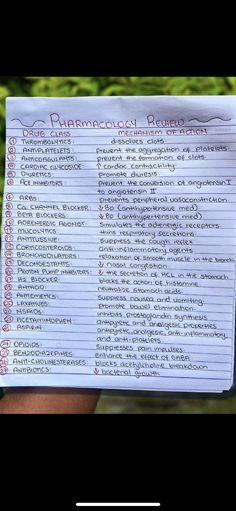 PHARMACOLOGY REVIEW
DRUG CLASS MECHANISM OF ACTION
① THROMBOLYTICS: dissolves clots
② ANTIPLATELETS: prevent the aggregation of platelets
③ ANTICOAGULANTS: prevent the formation of clots
④ CARDIAC GLYCOSIDE: ↑ cardiac contractility
⑤ DIURETICS: promote diuresis
⑥ ACE INHIBITORS: prevent the conversion of angiotensin I
to angiotensin II
ARBS: prevents peripheral vasoconstriction
Ca. CHANNEL BLOCKER: ↓ Bp (antihypertensive med)
BETA BLOCKERS: ↓ Bp (antihypertensive med)
ADRENERGIC AGONIST: Simulates the adrenergic receptors
MUCOLYTICS: thins respiratory secretions
ANTITUSSIVE: suppress the cough reflex
CORTICOSTEROIDS: anti-inflammatory agents
BRONCHODILATORS: relaxation of smooth muscle in the bronchi
DECONGESTANTS: ↓ nasal congestion
PROTON PUMP INHIBITORS: ↓ the secretion of HCL in the stomach
H2 BLOCKER: blocks the action of histamine
ANTACID: neutralise stomach acids
ANTIEMETICS: suppress nausea and vomiting
LAXATIVES: promote bowel elimination
NSAIDS: inhibits prostaglandin synthesis
ACETAMINOPHEN: antipyretic and analgesic properties
ASPIRIN: antipyretic, analgesic, anti-inflammatory
and anti-platelets
OPIOIDS: suppresses pain impulses
BENZODIAZEPINES: Enhance the effect of GABA
ANTI-CHOLINESTERASES: blocks acetylcholine breakdown
ANTIBIOTICS: ↓ bacterial growth